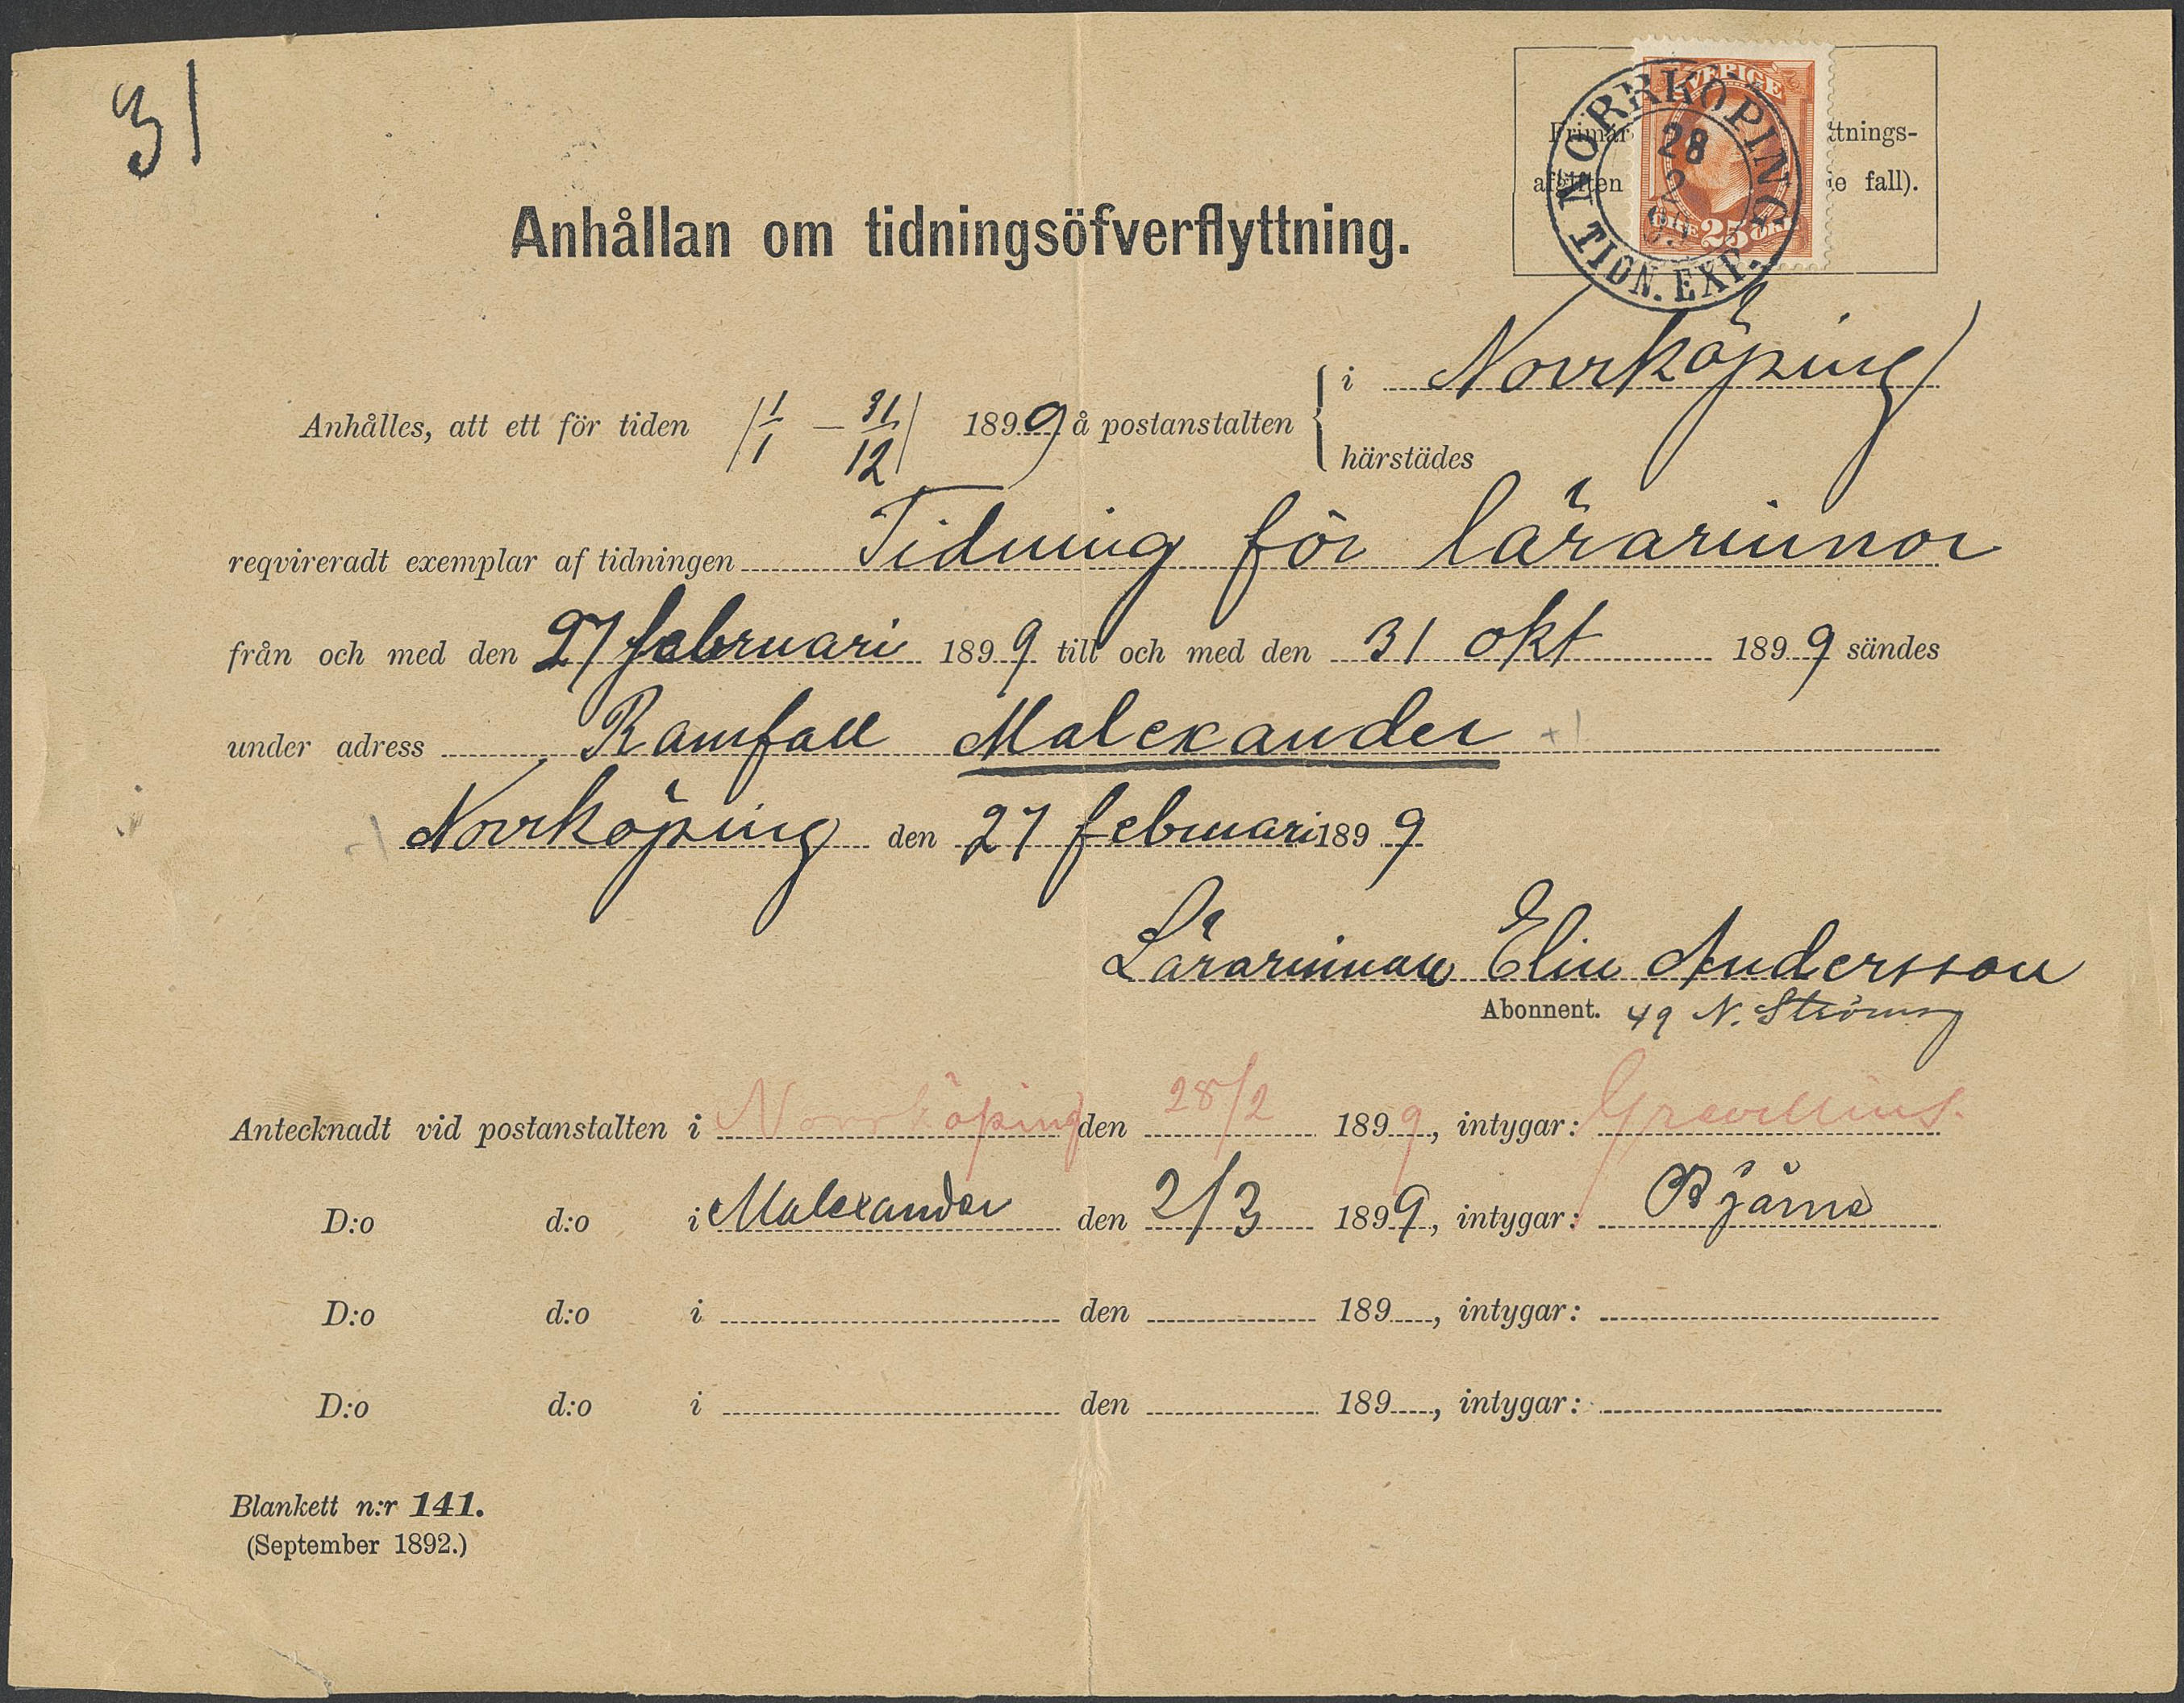 31
SVERIGE
25 ÖRE
NORRKÖPING
28
2
99
TIDN. EXP.
afgiften ie fall).
Anhållan om tidningsöfverflyttning.
Anhålles, att ett för tiden 1/1 – 31/12 1899 å postanstalten i Norrköping
härstädes
reqvireradt exemplar af tidningen Tidning för lärarinnor
från och med den 27 februari 1899 till och med den 31 okt 1899 sändes
under adress Ramfall Malexander +1
Norrköping den 27 februari 1899
Lärarinnan Elin Andersson
Abonnent. 49 N. Strömsg
Antecknadt vid postanstalten i Norrköping den 28/2 1899, intygar:
D:o d:o i Malexander den 2/3 1899, intygar:
D:o d:o i den 189 , intygar:
D:o d:o i den 189 , intygar:
Blankett n:r 141.
(September 1892.)